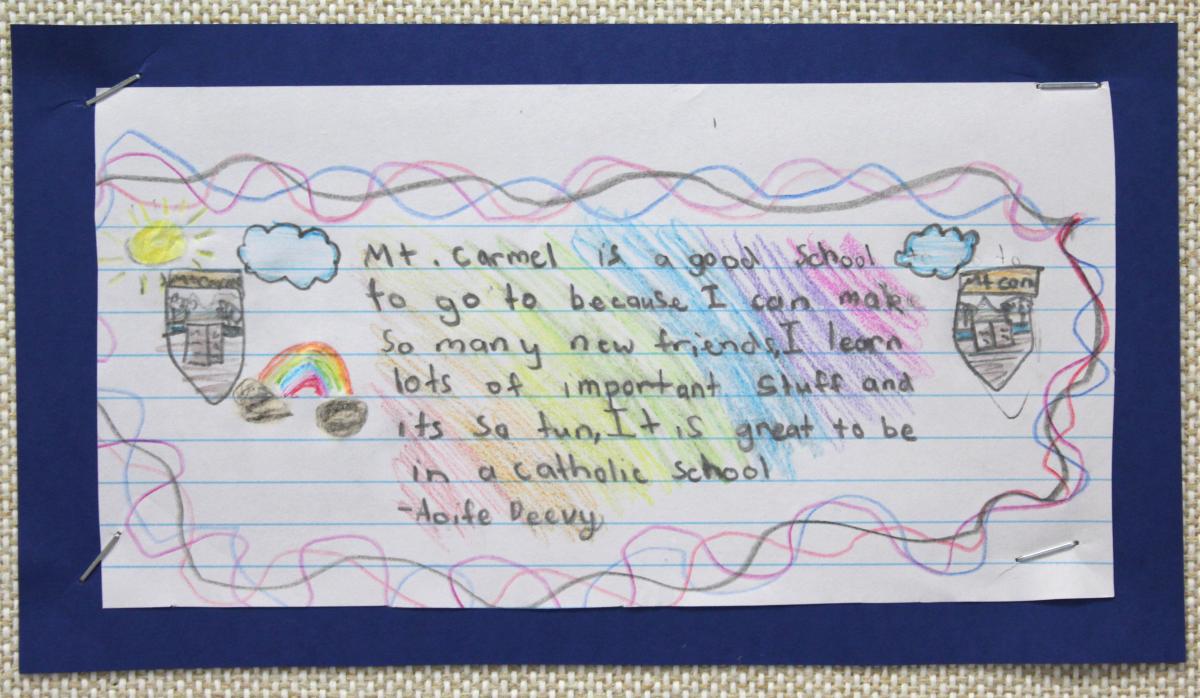 Mt. Carmel is a good School
to go to because I can make
So many new friends, I learn
lots of important Stuff and
its so fun, It is great to be
in a catholic school
-Aoife Deevy
Mt can